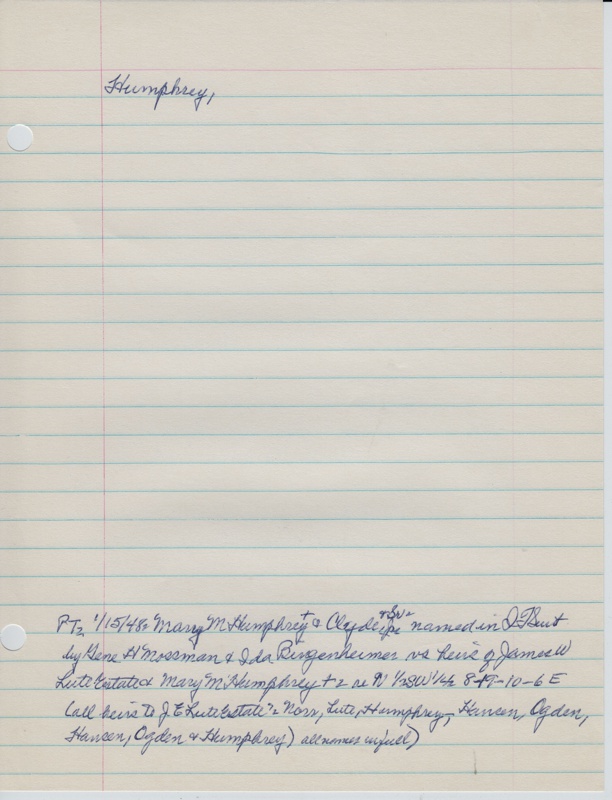 Humphrey,
PT2 1/15/48 Mary M Humphrey + & Clyde & Sv named in Q T Suit
by Gene H Mossman & Ida Bingenheimer vs heirs of James W
Lute Estate & Mary M Humphrey + re N 1/2 SW 1/4 8-T9-10-6E
(all heirs to J E Lute Estate Norr, Lute, Humphrey, Hansen, Ogden,
Hansen, Ogden & Humphrey) all names in full)